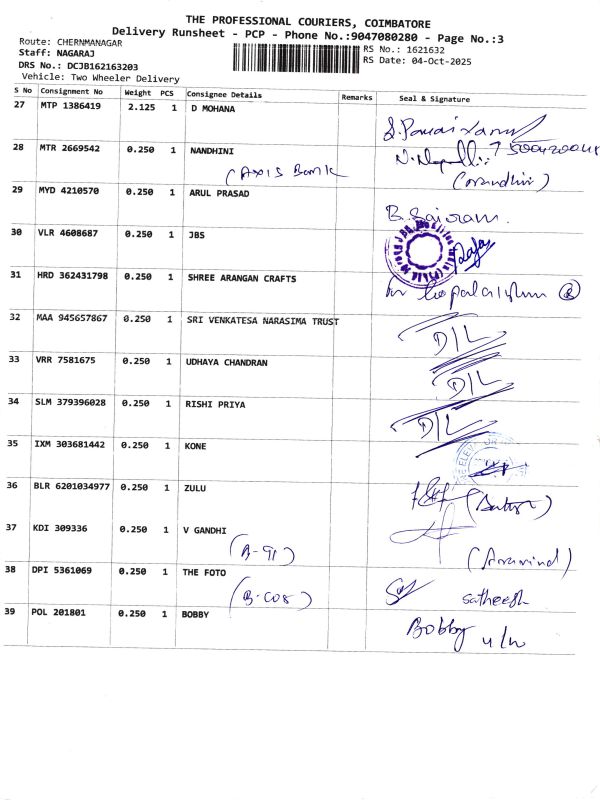 THE PROFESSIONAL COURIERS, COIMBATORE
Delivery Runsheet - PCP - Phone No.:9047080280 - Page No.:3
Route: CHERNMANAGAR RS No.: 1621632
Staff: NAGARAJ RS Date: 04-Oct-2025
DRS No.: DCJB162163203
Vehicle: Two Wheeler Delivery
S No Consignment No Weight PCS Consignee Details Remarks Seal & Signature
27 MTP 1386419 2.125 1 D MOHANA
28 MTR 2669542 0.250 1 NANDHINI
(AXIS Bank
(nandhini)
29 MYD 4210570 0.250 1 ARUL PRASAD
B. Sairam.
30 VLR 4608687 0.250 1 JBS
Raja
31 HRD 362431798 0.250 1 SHREE ARANGAN CRAFTS
32 MAA 945657867 0.250 1 SRI VENKATESA NARASIMA TRUST
D/L
33 VRR 7581675 0.250 1 UDHAYA CHANDRAN
D/L
34 SLM 379396028 0.250 1 RISHI PRIYA
D/L
35 IXM 303681442 0.250 1 KONE
36 BLR 6201034977 0.250 1 ZULU
37 KDI 309336 0.250 1 V GANDHI
(A-91)
(Aravind)
38 DPI 5361069 0.250 1 THE FOTO
(B-C08)
satheesh
39 POL 201801 0.250 1 BOBBY
Bobby